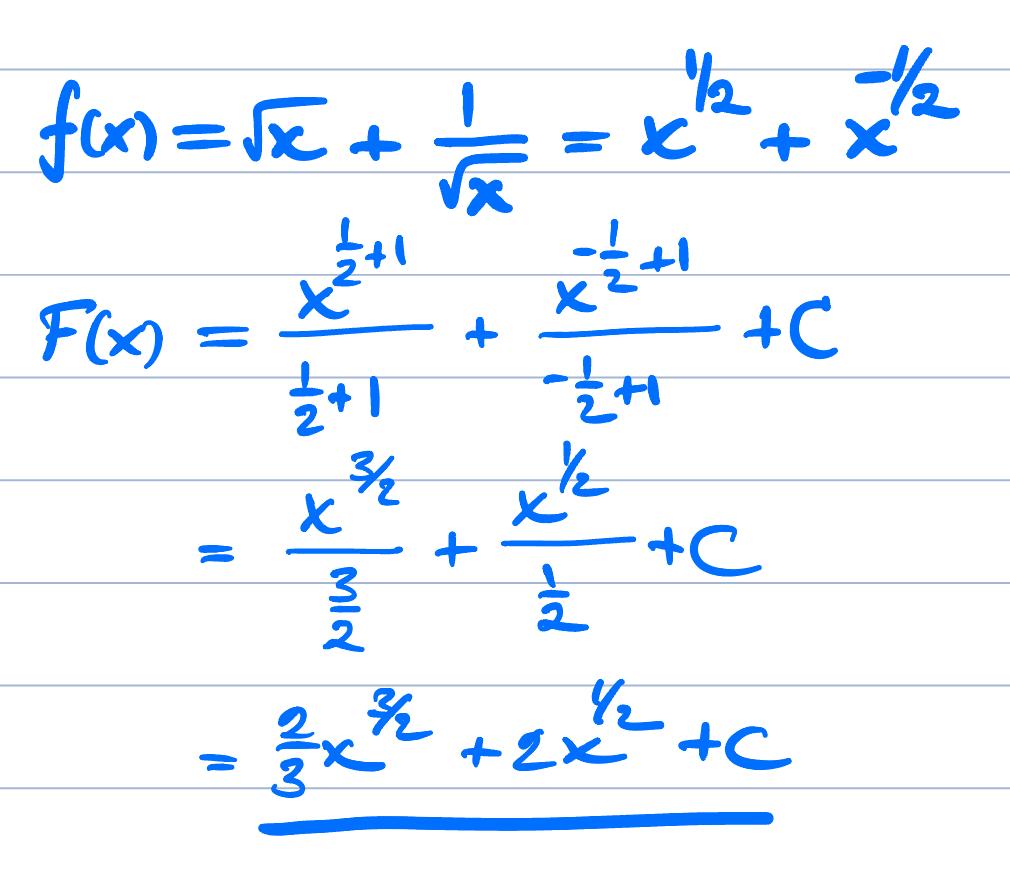 f(x) = √x + 1/√x = x^(1/2) + x^(-1/2)
F(x) = x^(1/2 + 1)/(1/2 + 1) + x^(-1/2 + 1)/(-1/2 + 1) + C
= x^(3/2)/(3/2) + x^(1/2)/(1/2) + C
= 2/3 x^(3/2) + 2x^(1/2) + C